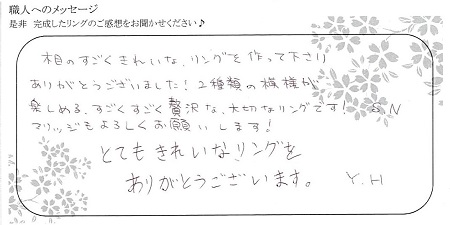 職人へのメッセージ
是非 完成したリングのご感想をお聞かせください♪
木目のすごくきれいな、リングを作って下さり
ありがとうございました！2種類の模様が
楽しめる、すごくすごく贅沢な、大切なリングです！ S.N
マリッジもよろしくお願いします！
とてもきれいなリングを
ありがとうございます。 Y.H